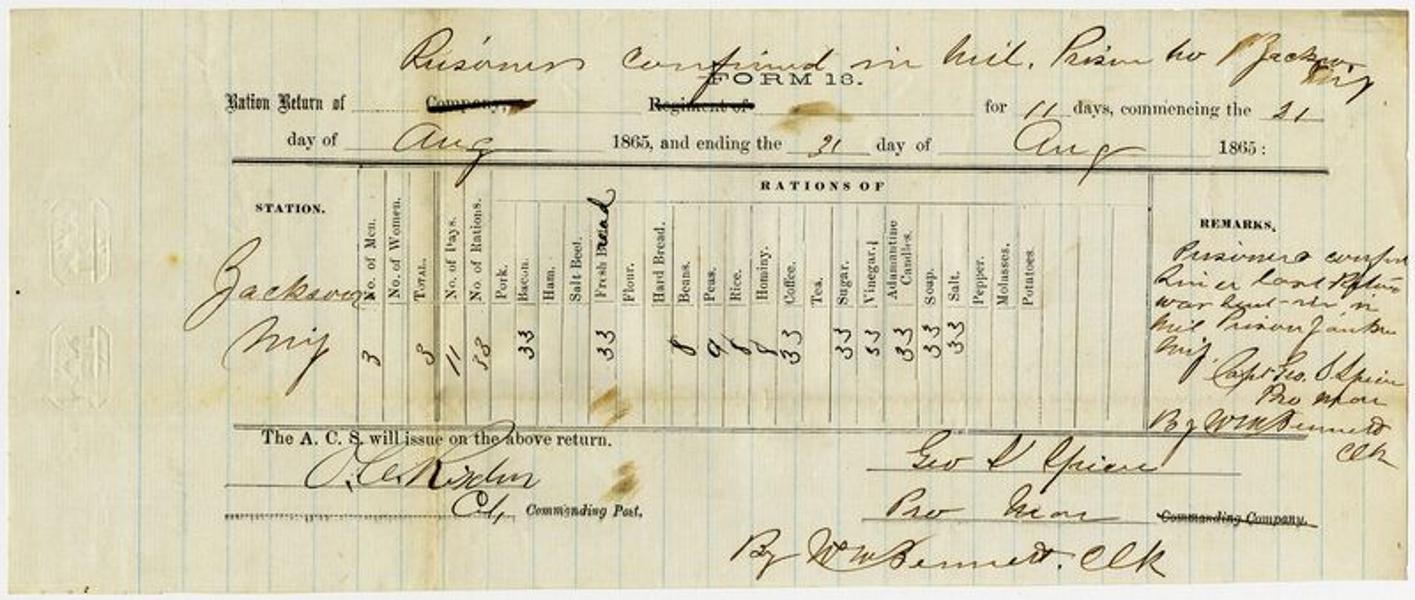 Prisoners confined in Mil. Prison no Jackson
FORM 13.
Miſ
Ration Return of Company, Regiment of for 11 days, commencing the 21
day of Aug 1865, and ending the 31 day of Aug 1865:
RATIONS OF
STATION. No. of Men. No. of Women. TOTAL. No. of Days. No. of Rations. Pork. Bacon. Ham. Salt Beef. Fresh Bread Flour. Hard Bread. Beans. Peas. Rice. Hominy. Coffee. Tea. Sugar. Vinegar. Adamantine Candles. Soap. Salt. Pepper. Molasses. Potatoes. REMARKS.
Jackson
Miſ 3 3 11 33 33 33 8 9 8 8 33 33 33 33 33 33
Prisoners
since last
was in
Mil Prison
Miſ.
Capt Geo. S Spicer
Pro Mar
By WM Bennett
Clk
The A. C. S. will issue on the above return.
Geo S Spicer
Col, Commanding Post.
Pro Mar Commanding Company.
By W M Bennett. Clk